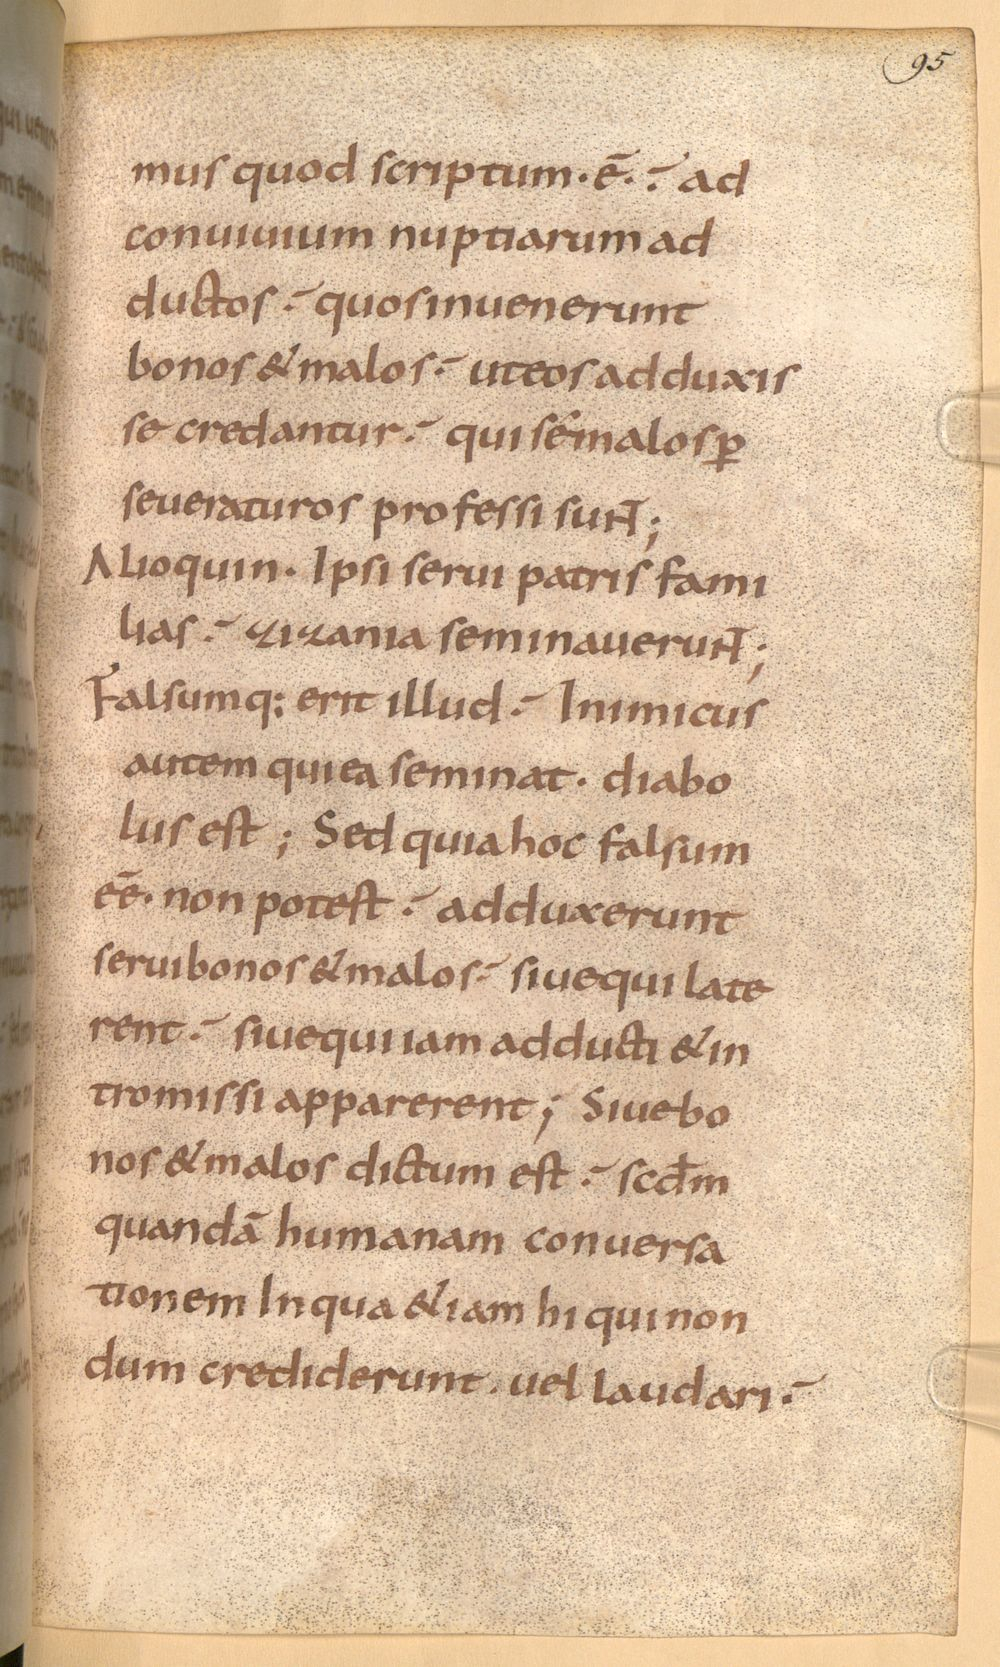 95
mus quod scriptum·ē·:- ad
conuiuium nuptiarum ad
ductos :- quos inuenerunt
bonos & malos :- ut eos adduxis
se credantur :- qui sē malos ꝑ
seueraturos professi sunt ;
Alioquin · Ipsi serui patris fami
lias :- zizania seminauerunt ;
Falsumq; erit illud :- Inimicus
autem qui ea seminat · diabo
lus est ; Sed quia hoc falsum
eē· non potest :- adduxerunt
serui bonos & malos :- siue qui late
rent :- siue qui iam adducti & in
tromissi apparerent ; Siue bo
nos & malos dictum est :- scdm̄
quandā humanam conuersa
tionem In qua &iam hi qui non
dum crediderunt · uel laudari :-